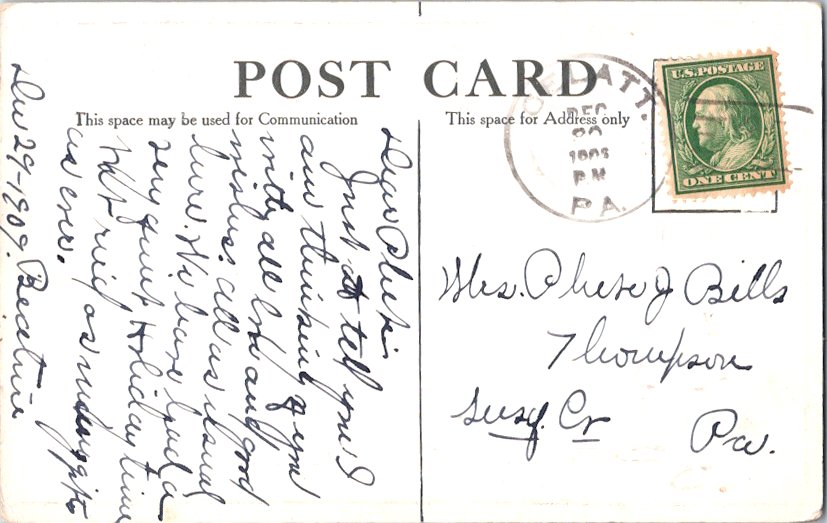 POST CARD
This space may be used for Communication
This space for Address only
U.S. POSTAGE
ONE CENT
DEC
P.M
PA.
Dear Phebe
Just to tell you I
am thinking of you
with all love and good
wishes. all as usual
here. We have had a
very quiet Holiday time
as ever.
Dec 29-1909.
Mrs. Phebe J Bills
Thompson
Susq. Co
Pa.